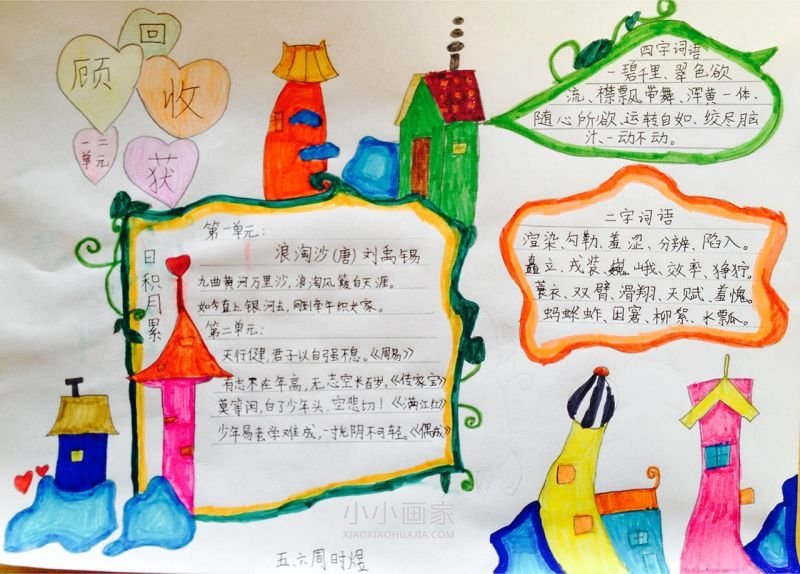 回
顾
收
获
一二
单元
四字词语
一碧千里、翠色欲
流、襟飘带舞、浑黄一体、
随心所欲、运转自如、绞尽脑
汁、一动不动。
二字词语
渲染、勾勒、羞涩、分辨、陷入。
矗立、戎装、巍峨、效率、狰狞。
蓑衣、双臂、滑翔、天赋、羞愧。
蚂蚱、困窘、柳絮、水瓢。
日积月累
第一单元：
浪淘沙(唐)刘禹锡
九曲黄河万里沙，浪淘风簸自天涯。
如今直上银河去，同到牵牛织女家。
第二单元：
天行健，君子以自强不息。《周易》
有志不在年高，无志空长百岁。《传家宝》
莫等闲，白了少年头，空悲切！《满江红》
少年易老学难成，一寸光阴不可轻。《偶成》
小小画家
XIAOXIAOHUAJIA.COM
五、六周时煜